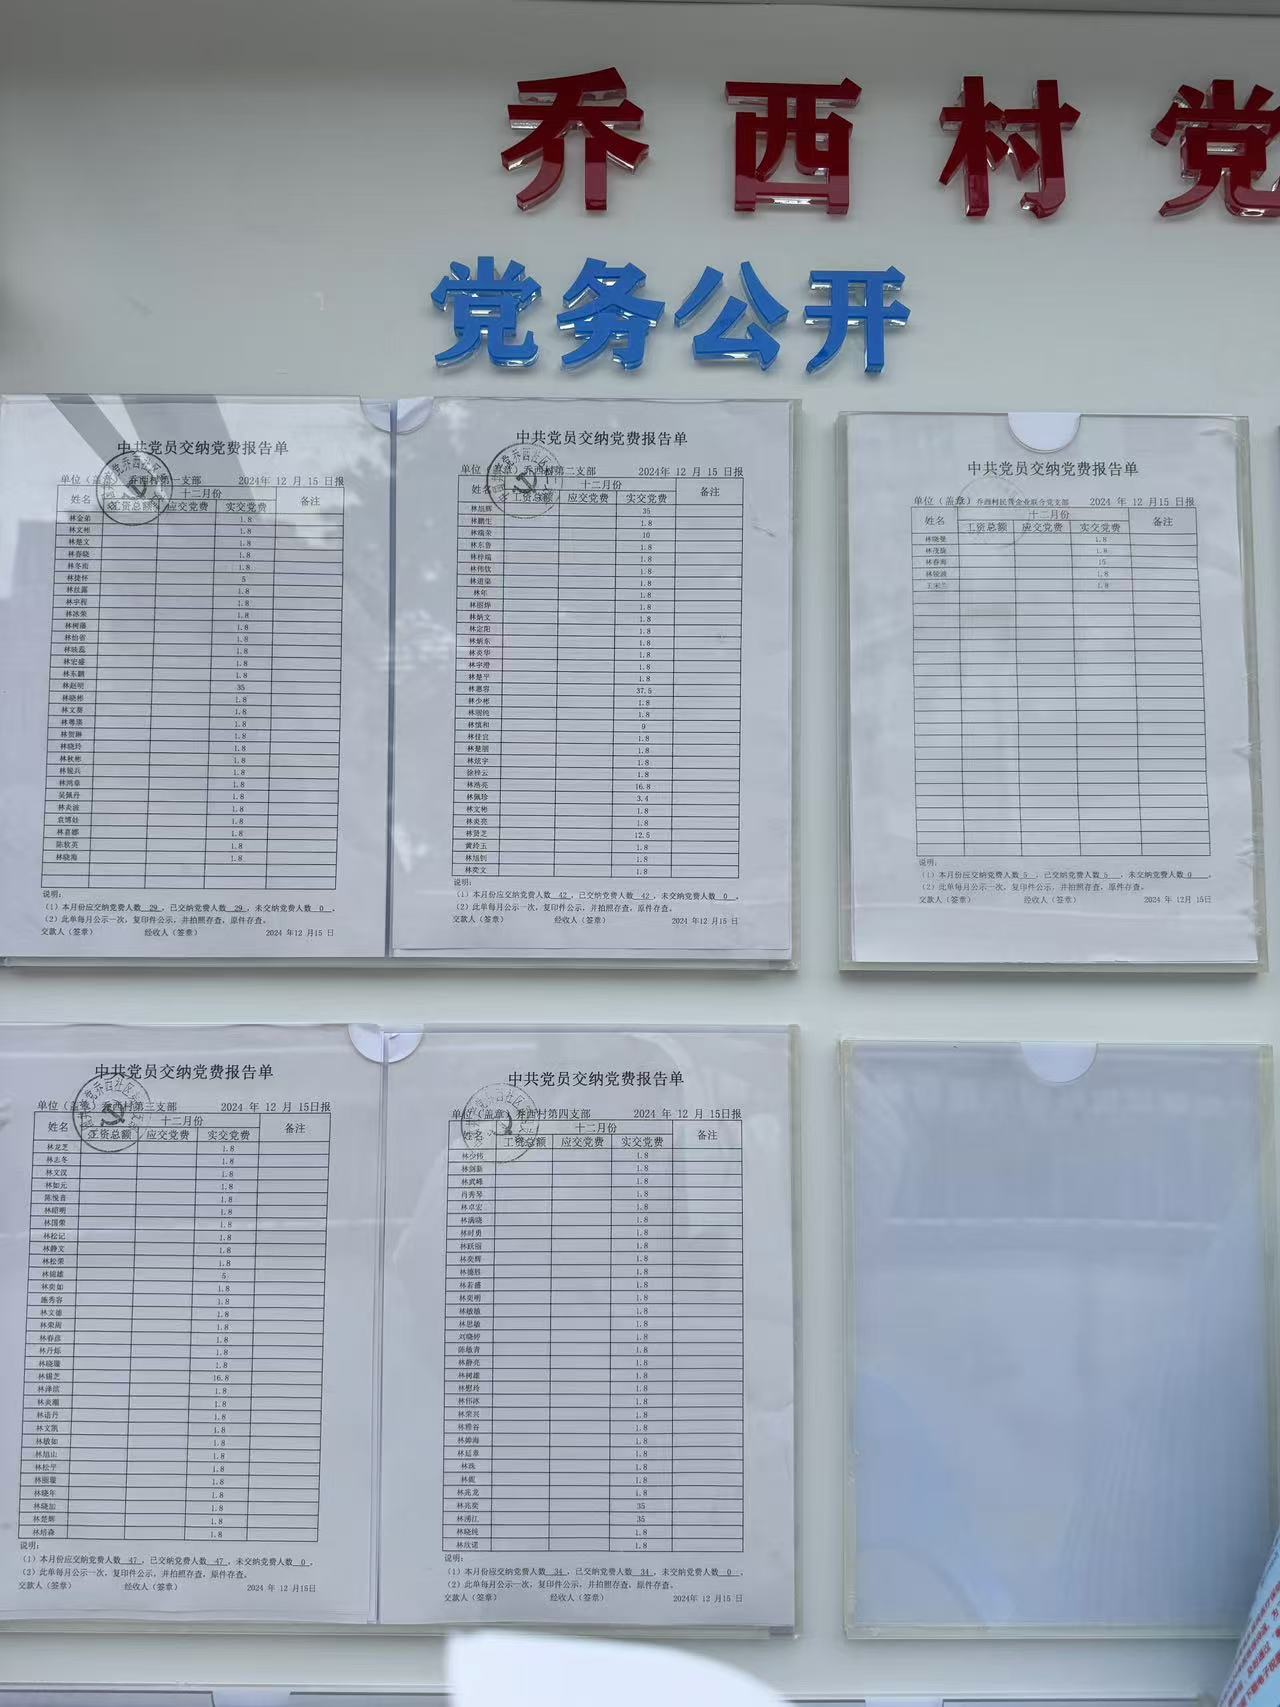 乔西村党
党务公开
中共党员交纳党费报告单
单位（盖章）乔西村第一支部 2024年 12 月 15 日报
姓名 十二月份 备注
工资总额 应交党费 实交党费
林金弟 1.8
林文彬 1.8
林楚文 1.8
林春晓 1.8
林冬南 1.8
林捷怀 5
林丝露 1.8
林宇程 1.8
林冰荣 1.8
林树藩 1.8
林怡省 1.8
林映蕊 1.8
林宏盛 1.8
林东鹏 1.8
林赵明 35
林晓彬 1.8
林文葵 1.8
林粤瑛 1.8
林贺琳 1.8
林晓玲 1.8
林秋彬 1.8
林锐兵 1.8
林鸿章 1.8
吴佩丹 1.8
林炎波 1.8
袁博娃 1.8
林喜娜 1.8
陈牧英 1.8
林晓海 1.8
说明：
（1）本月份应交纳党费人数 29 ，已交纳党费人数 29 ，未交纳党费人数 0 。
（2）此单每月公示一次，复印件公示，并拍照存查，原件存查。
交款人（签章） 经收人（签章） 2024 年12 月15 日
中共党员交纳党费报告单
单位（盖章）乔西村第二支部 2024年 12 月 15 日报
姓名 十二月份 备注
工资总额 应交党费 实交党费
林旭辉 35
林鹏生 1.8
林瑞荣 10
林东鲁 1.8
林梓端 1.8
林伟钦 1.8
林道燊 1.8
林年 1.8
林丽烨 1.8
林炳文 1.8
林定阳 1.8
林炳东 1.8
林炎华 1.8
林宇澄 1.8
林楚平 1.8
林惠容 37.5
林少彬 1.8
林丽纯 1.8
林慎和 9
林佳宜 1.8
林楚丽 1.8
林炫宇 1.8
徐梓云 1.8
林浩亮 16.8
林佩珍 3.4
林文彬 1.8
林炎亮 1.8
林贤芝 12.5
黄玲玉 1.8
林旭钊 1.8
林奕文 1.8
说明：
（1）本月份应交纳党费人数 42 ，已交纳党费人数 42 ，未交纳党费人数 0 。
（2）此单每月公示一次，复印件公示，并拍照存查，原件存查。
交款人（签章） 经收人（签章） 2024 年12 月15 日
中共党员交纳党费报告单
单位（盖章）乔西村民营企业联合党支部 2024 年 12 月15 日报
姓名 十二月份 备注
工资总额 应交党费 实交党费
林晓曼 1.8
林茂旋 1.8
林春海 15
林锐波 1.8
王宋兰 1.8
说明：
（1）本月份应交纳党费人数 5 ，已交纳党费人数 5 ，未交纳党费人数 0 。
（2）此单每月公示一次，复印件公示，并拍照存查，原件存查。
交款人（签章） 经收人（签章） 2024 年 12月 15日
中共党员交纳党费报告单
单位（盖章）乔西村第三支部 2024 年 12 月 15日报
姓名 十二月份 备注
工资总额 应交党费 实交党费
林龙芝 1.8
林志冬 1.8
林文汉 1.8
林如元 1.8
陈悦音 1.8
林昭明 1.8
林国荣 1.8
林松记 1.8
林静文 1.8
林松荣 1.8
林锦雄 5
林奕如 1.8
施秀容 1.8
林文德 1.8
林荣周 1.8
林春彦 1.8
林丹烁 1.8
林晓璇 1.8
林锡芝 16.8
林泽滨 1.8
林炎潮 1.8
林语丹 1.8
林文凯 1.8
林敏如 1.8
林旭山 1.8
林松平 1.8
林丽璇 1.8
林晓年 1.8
林晓加 1.8
林楚辉 1.8
林培森 1.8
说明：
（1）本月份应交纳党费人数 47 ，已交纳党费人数 47 ，未交纳党费人数 0 。
（2）此单每月公示一次，复印件公示，并拍照存查，原件存查。
交款人（签章） 经收人（签章） 2024 年 12 月15日
中共党员交纳党费报告单
单位（盖章）乔西村第四支部 2024 年 12 月 15日报
姓名 十二月份 备注
工资总额 应交党费 实交党费
林少伟 1.8
林剑新 1.8
林武峰 1.8
肖秀琴 1.8
林卓宏 1.8
林满晓 1.8
林时勇 1.8
林跃丽 1.8
林奕辉 1.8
林德胜 1.8
林若盛 1.8
林奕明 1.8
林敏敏 1.8
林思敏 1.8
刘晓婷 1.8
陈敏青 1.8
林静亮 1.8
林树雄 1.8
林慰玲 1.8
林伟冰 1.8
林荣兴 1.8
林雅谷 1.8
林帅海 1.8
林廷章 1.8
林珠 1.8
林妮 1.8
林兆龙 1.8
林兆奕 35
林湧江 35
林晓纯 1.8
林欣诺 1.8
说明：
（1）本月份应交纳党费人数 34 ，已交纳党费人数 34 ，未交纳党费人数 0 。
（2）此单每月公示一次，复印件公示，并拍照存查，原件存查。
交款人（签章） 经收人（签章） 2024年 12 月15 日